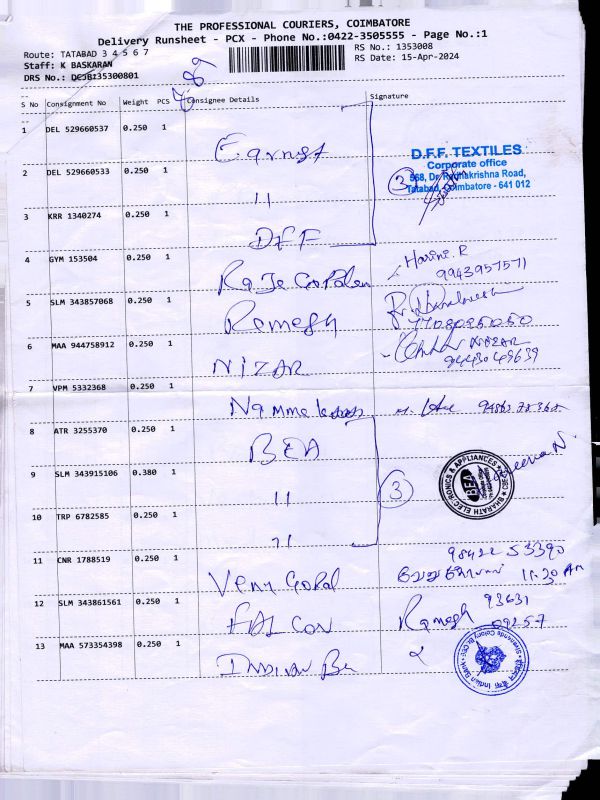 THE PROFESSIONAL COURIERS, COIMBATORE
Delivery Runsheet - PCX - Phone No.:0422-3505555 - Page No.:1
Route: TATABAD 3 4 5 6 7
RS No.: 1353008
Staff: K BASKARAN
RS Date: 15-Apr-2024
DRS No.:
S No Consignment No Weight PCS Consignee Details Signature
1 DEL 529660537 0.250 1
D.F.F. TEXTILES
Corporate office
568, Dr. Radhakrishna Road,
Tatabad, Coimbatore - 641 012
2 DEL 529660533 0.250 1 11 3
3 KRR 1340274 0.250 1 DFF
4 GYM 153504 0.250 1 Harini.R
9943957571
5 SLM 343857068 0.250 1 Ramesh
6 MAA 944758912 0.250 1 NIZAR
7 VPM 5332368 0.250 1
8 ATR 3255370 0.250 1 BEA
9 SLM 343915106 0.380 1 11 3
BHARATH ELECTRONICS & APPLIANCES
BEA
10 TRP 6782585 0.250 1 11
11 CNR 1788519 0.250 1 Venu Gopal 11.30 Am
12 SLM 343861561 0.250 1 FALCON Ramesh 93631
09257
13 MAA 573354398 0.250 1